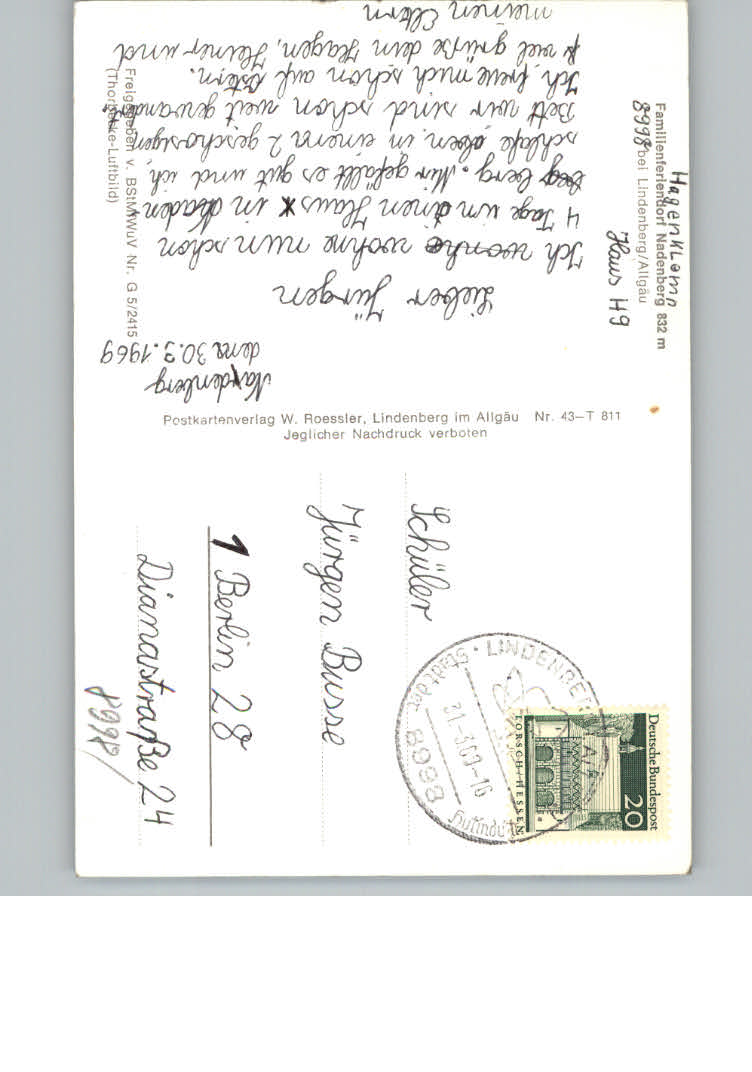 Hagen Klamn
Familienferiendorf Nadenberg 832 m
8998 bei Lindenberg/Allgäu
Haus H9
Nardenberg
dena 30.3.1969
Lieber Jürgen
Ich wonhe wohne nun schon
4 Tage in dinen Haus in Naden-
berg. Mir gefällt es gut und ich
schlafe oben in einem 2 geschosigen
Bett wir sind schon weit gewandert.
Ich freue mich schon auf Ostern.
viel grüße dein Hagen, Heiner und
meinen Eltern
Freigegeben v. BStMWuV Nr. G 5/2415
(Thorbecke-Luftbild)
Postkartenverlag W. Roessler, Lindenberg im Allgäu Nr. 43–T 811
Jeglicher Nachdruck verboten
Schüler
Jürgen Busse
1 Berlin 28
Dianastraße 24
8998/
Deutsche Bundespost
20
LORSCH/HESSEN
LINDENBERG
Stadt der
31-3.69-16
8998